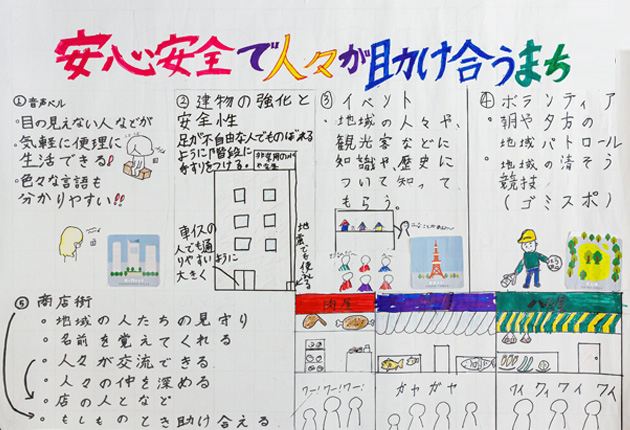 安心安全で人々が助け合うまち
①音声ベル
・目の見えない人などが
・気軽に便理に
生活できる!
・色々な言語も
分かりやすい!!
②建物の強化と
安全性
足が不自由な人でものぼれる
ように階段に
手すりをつける。
車イスの
人でも通り
やすいように
大きく
地震でも使える
③イベント
・地域の人々や、
観光客などに
知識や歴史に
ついて知って
もらう。
④ボランティア
・朝や夕方の
地域パトロール
・地域の清そう
競技
(ゴミスポ)
⑤商店術
・地域の人たちの見守り
・名前を覚えてくれる
・人々が交流できる
・人々の仲を深める
・店の人となど
・もしものとき助け合える
肉屋
ワー!ワー!ワー!
ガヤガヤ
ワイワイワイワイ